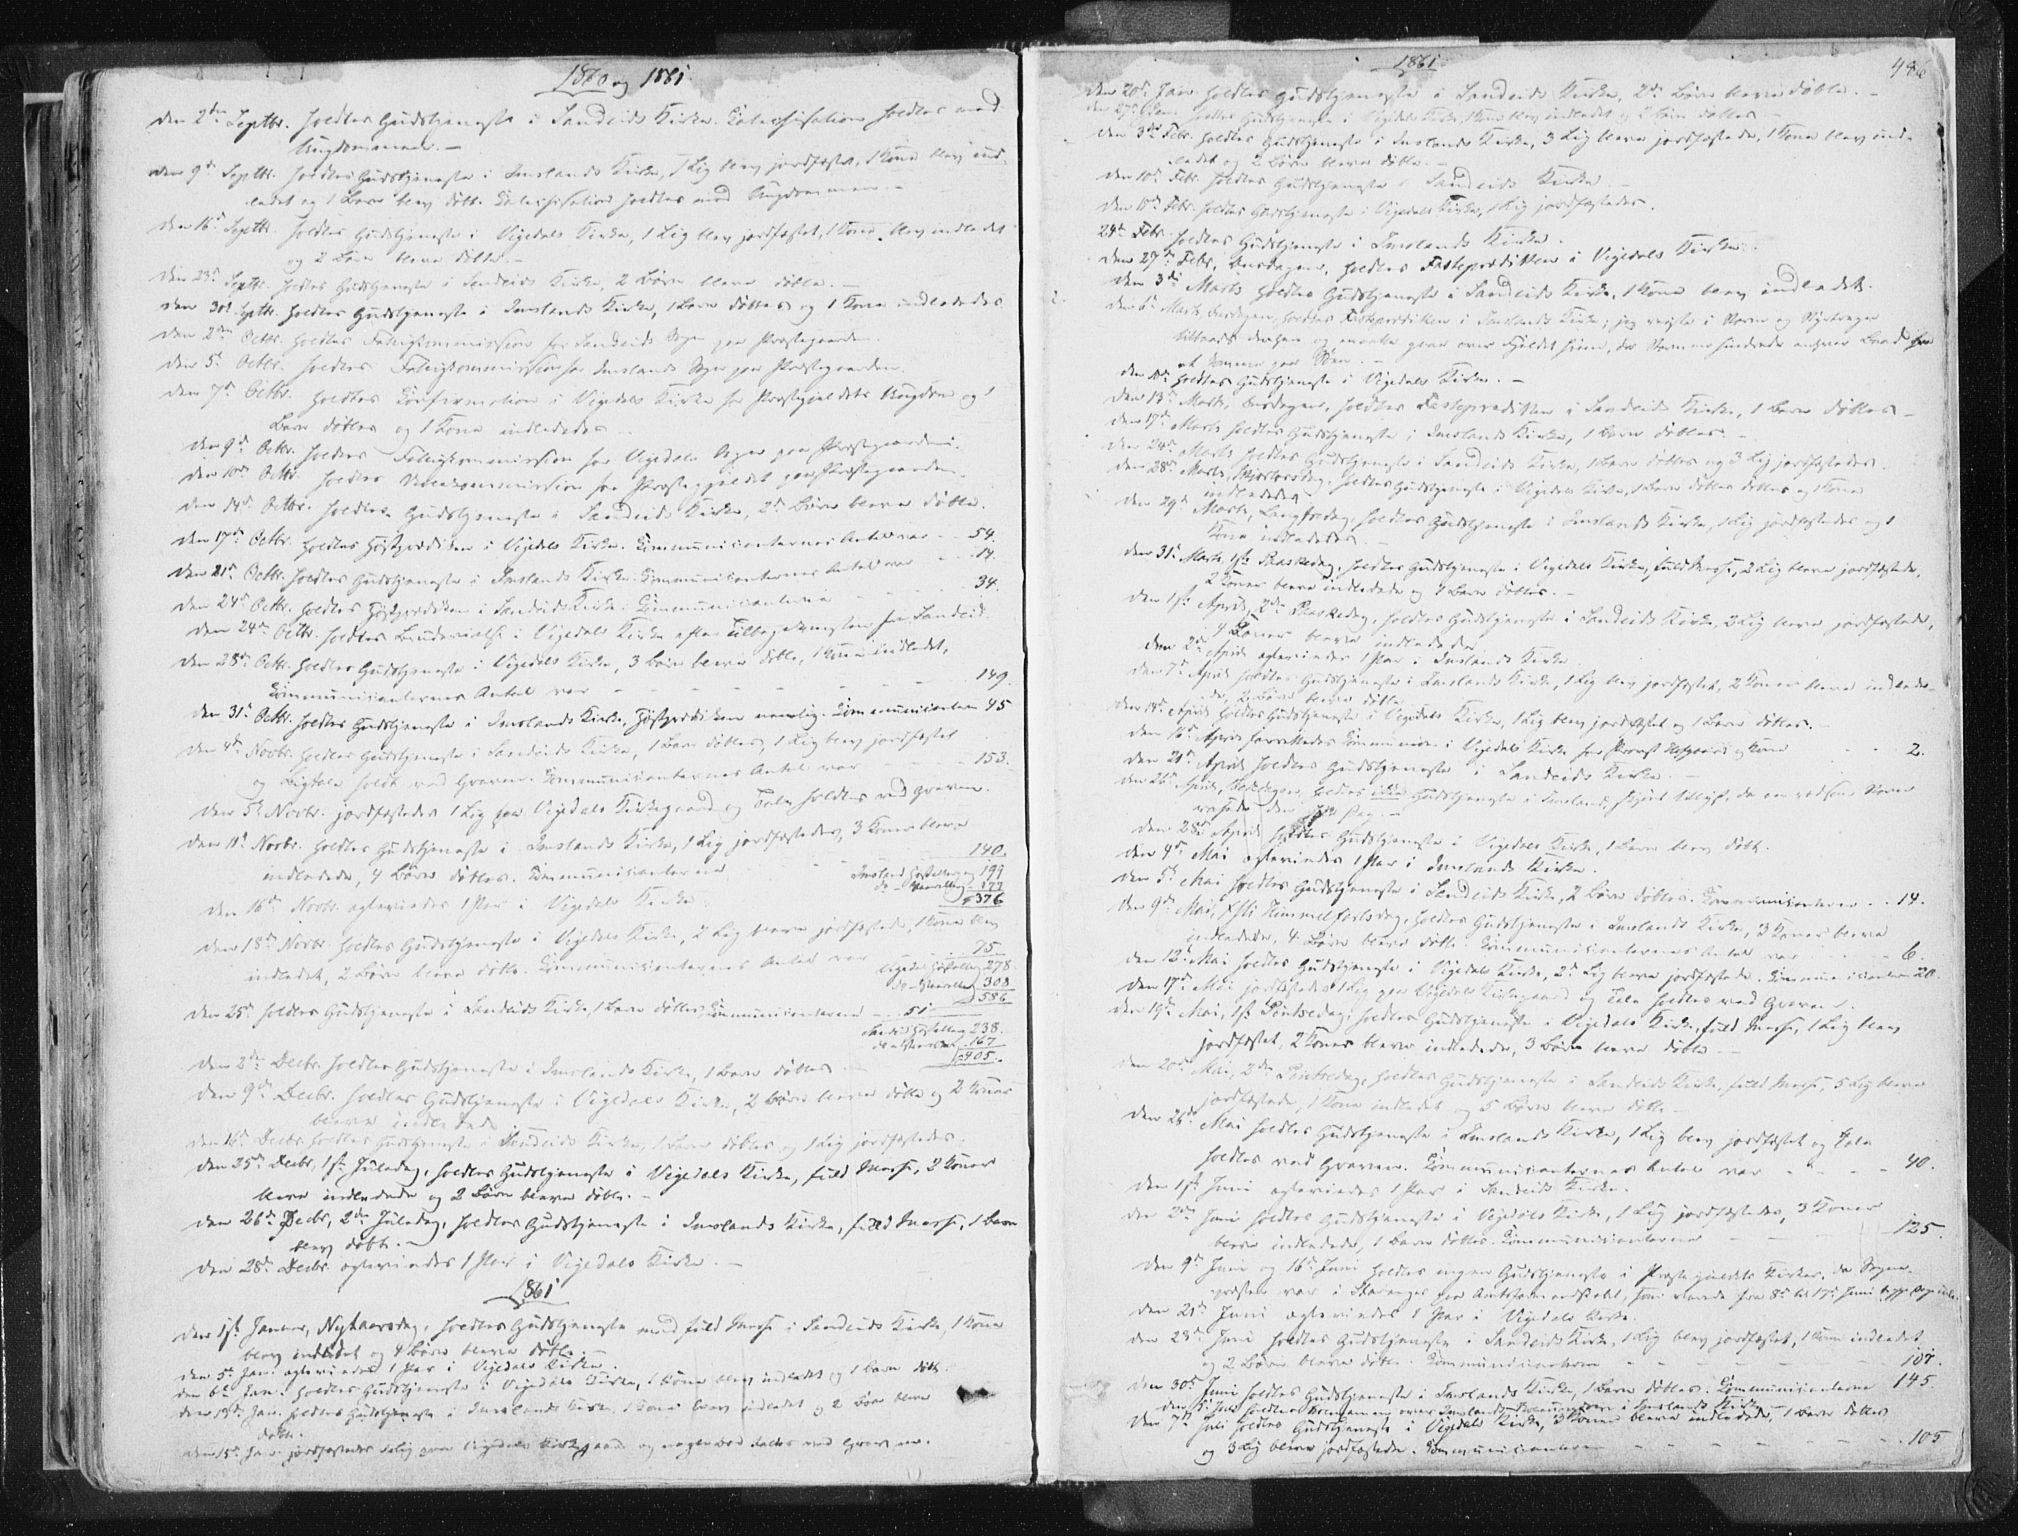 1860 og 1861
den 2den Septbr. holdtes Gudstjeneste i Sandeids Kirke. Catechisation holdtes med
Ungdommen. —
den 9de Septbr. holdtes Gudstjeneste i Imslands Kirke, 1 Lig blev jordfæstet, 1 Kone blev ind-
ledet og 1 Barn blev döbt. Catechisation holdtes med Ungdommen. —
den 16de Septbr. holdtes Gudstjeneste i Vigedals Kirke, 1 Lig blev jordfæstet, 1 Kone blev indledet
og 2 Börn bleve döbte. —
den 23de Septbr. holdtes Gudstjeneste i Sandeids Kirke, 2 Börn bleve döbte. —
den 30te Septbr. holdtes Gudstjeneste i Imslands Kirke, 1 Barn döbtes og 1 Kone indlededes
den 2den Octbr. holdtes Fattigkommission for Sandeids Sogn paa Præstegaarden.
den 5te Octbr. holdtes Fattigkommission for Imslands Sogn paa Præstegaarden.
den 7de Octbr. holdtes Confirmation i Vigedals Kirke for Præstegjeldets Ungdom og 1
Barn döbtes og 1 Kone indlededes —
den 9de Octbr. holdtes Fattigkommission for Vigedals Sogn paa Præstegaarden.
den 10de Octbr. holdtes Skolekommission for Præstegjeldet paa Præstegaarden.
den 14de Octbr. holdtes Gudstjeneste i Sandeids Kirke, 2 Börn bleve döbte.
den 17de Octbr. holdtes Höstprædiken i Vigedals Kirke. Communicanternes Antal var — 54.
den 21de Octbr. holdtes Gudstjeneste i Imslands Kirke. Communicanternes Antal var — 14.
den 24de Octbr. holdtes Höstprædiken i Sandeids Kirke. Communicanterne — 34.
den 24de Octbr. holdtes i Vigedals Kirke efter Tilbagekomsten fra Sandeid.
den 28de Octbr. holdtes Gudstjeneste i Vigedals Kirke, 3 Börn bleve döbte, 1 Kone indledet,
Communicanternes Antal var — 149.
den 31te Octbr. holdtes Gudstjeneste i Imslands Kirke, Höstprædiken nemlig. Communicanterne 45
den 4de Novbr. holdtes Gudstjeneste i Sandeids Kirke, 1 Barn döbtes, 1 Lig blev jordfæstet
og Ligtale holdt ved Graven. Communicanternes Antal var — 153.
den 5te Novbr. jordfæstedes 1 Lig paa Vigedals Kirkegaard og Tale holdtes ved Graven.
den 11te Novbr. holdtes Gudstjeneste i Imslands Kirke, 1 Lig jordfæstedes, 3 Koner bleve
indledede, 4 Börn döbtes. Communicanterne 140.
Imsland 199
177
376
den 16de Novbr. egteviedes 1 Par i Vigedals Kirke
den 18de Novbr. holdtes Gudstjeneste i Vigedals Kirke, 2 Lig bleve jordfæstede, 1 Kone blev
indledet, 2 Börn bleve döbte. Communicanternes Antal var 75
Vigedal 278.
308
586
den 25de holdtes Gudstjeneste i Sandeids Kirke, 1 Barn döbtes, Communicanterne — 51
Sandeid 238.
167
405.
den 2den Decbr. holdtes Gudstjeneste i Imslands Kirke, 1 Barn döbtes. —
den 9de Decbr. holdtes Gudstjeneste i Vigedals Kirke, 2 Börn bleve döbte og 2 Koner
bleve indledede
den 16de Decbr. holdtes Gudstjeneste i Sandeids Kirke, 1 Barn döbtes og 1 Lig jordfæstedes.
den 25de Decbr., 1ste Juledag, holdtes Gudstjeneste i Vigedals Kirke, fuld Messe, 2 Koner
bleve indledede og 2 Börn bleve döbte. —
den 26de Decbr, 2den Juledag, holdtes Gudstjeneste i Imslands Kirke, fuld Messe, 1 Barn
blev döbt. —
den 28de Decbr. egteviedes 1 Par i Vigedals Kirke. —
1861
den 1ste Januar, Nytaarsdag, holdtes Gudstjeneste med fuld Messe i Sandeids Kirke, 1 Kone
blev indledet og 4 Börn bleve döbte. —
den 5te Jan. egteviedes 1 Par i Vigedals Kirke.
den 6te Jan. holdtes Gudstjeneste i Vigedals Kirke, 1 Kone blev indledet og 1 Barn döbt.
den 13de Jan. holdtes Gudstjeneste i Imslands Kirke, 1 Kone blev indledet og 2 Börn bleve
döbte.
den 15de Jan. jordfæstedes 1 Lig paa Vigedals Kirkegaard og nogle Ord taltes ved Graven.
1861
486
den 20de Jan holdtes Gudstjeneste i Sandeids Kirke, 2 Börn bleve döbte. —
den 27de Jan. holdtes Gudstjeneste i Vigedals Kirke, 1 Kone blev indledet og 2 Börn döbtes —
den 3die Febr. holdtes Gudstjeneste i Imslands Kirke, 3 Lig bleve jordfæstede, 1 Kone blev ind-
ledet og 2 Börn bleve döbte. —
den 10de Febr. holdtes Gudstjeneste i Sandeids Kirke —
den Febr. holdtes Gudstjeneste i Vigedals Kirke, 1 Lig jordfæstedes.
24de Febr. holdtes Gudstjeneste i Imslands Kirke.
den 27de Febr, Onsdagen, holdtes Fasteprædiken i Vigedals Kirke.
den 3die Marts holdtes Gudstjeneste i Sandeids Kirke, 1 Kone blev indledet.
den 6te Marts Onsdagen, holdtes Fasteprædiken i Imslands Kirke; jeg reiste i Storm og
tilbaads derhen og maatte gaae over Fjeldet hjem, da Stormen hindrede enhver Baad fra
at komme paa Söen. —
den 10de holdtes Gudstjeneste i Vigedals Kirke. —
den 13de Marts, Onsdagen, holdtes Fasteprædiken i Sandeids Kirke, 1 Barn döbtes —
den 17de Marts holdtes Gudstjeneste i Imslands Kirke, 1 Barn döbtes. —
den 24de Marts holdtes Gudstjeneste i Sandeids Kirke, 1 Barn döbtes og 3 Lig jordfæstedes.
den 28de Marts, Skjertorsdag, holdtes Gudstjeneste i Vigedals Kirke, 1 Barn döbtes og 1 Kone
indlededes
den 29de Marts, Langfredag, holdtes Gudstjeneste i Imslands Kirke, 1 Lig jordfæstedes og 1
Kone indlededes. —
den 31te Marts, 1ste Paaskedag, holdtes Gudstjeneste i Vigedals Kirke, fuld Messe, 2 Lig bleve jordfæstede,
2 Koner bleve indledede og 4 Börn döbtes. —
den 1ste April, 2den Paaskedag, holdtes Gudstjeneste i Sandeids Kirke, 2 Lig bleve jordfæstede,
4 Koner bleve indledede
den 2den April egteviedes 1 Par i Imslands Kirke.
den 7de April holdtes Gudstjeneste i Imslands Kirke, 1 Lig blev jordfæstet, 2 Koner bleve indlede-
de, 2 Börn bleve döbte.
den 14de April holdtes Gudstjeneste i Vigedals Kirke, 1 Lig blev jordfæstet og 1 Barn döbtes. —
den 16de April forrettedes Communion i Vigedals Kirke for Provst og Kone — 2.
den 21de April holdtes Gudstjeneste i Sandeids Kirke. —
den 26de April, Bededagen, holdtes ikke Gudstjeneste i Imsland, da en voldsom Storm
rasede den Dag. —
den 28de April holdtes Gudstjeneste i Vigedals Kirke, 1 Barn blev döbt.
den 4de Mai egteviedes 1 Par i Imslands Kirke.
den 5te Mai holdtes Gudstjeneste i Sandeids Kirke, 2 Börn döbtes. Communicanterne . . 14.
den 9de Mai, Chr: Himmelfartsdag, holdtes Gudstjeneste i Imslands Kirke, 3 Koner bleve
indledede, 4 Börn bleve döbte. Communicanternes Antal var — 6.
den 12te Mai holdtes Gudstjeneste i Vigedals Kirke, 2 Lig bleve jordfæstede. Communicanterne 20.
den 17de Mai jordfæstedes 1 Lig paa Vigedals Kirkegaard og Tale holdtes ved Graven.
den 19de Mai, 1ste Pintsedag, holdtes Gudstjeneste i Vigedals Kirke, fuld Messe, 1 Lig blev
jordfæstet, 2 Koner bleve indledede, 3 Börn bleve döbte —
den 20de Mai, 2den Pintsedag, holdtes Gudstjeneste i Sandeids Kirke, fuld Messe, 5 Lig bleve
jordfæstede, 1 Kone indledet og 5 Börn bleve döbte —
den 26de Mai holdtes Gudstjeneste i Imslands Kirke, 1 Lig blev jordfæstet og Tale
holdtes ved Graven. Communicanternes Antal var — 40.
den 1ste Juni egteviedes 1 Par i Sandeids Kirke.
den 2den Juni holdtes Gudstjeneste i Vigedals Kirke, 1 Lig jordfæstedes, 3 Koner
bleve indledede, 1 Barn döbtes. Communicanterne — 125.
den 9de Juni og 16de Juni holdtes ingen Gudstjeneste i Præstegjeldets Kirker, da Sogne-
præsten var i Stavanger paa Amtsformandskabet, fra 8de til 17de Juni
den 21de Juni egteviedes 1 Par i Vigedals Kirke.
den 23de Juni holdtes Gudstjeneste i Sandeids Kirke, 1 Lig blev jordfæstet, 1 Kone indledet
og 2 Börn bleve döbte. Communicanterne — 107.
den 30te Juni holdtes Gudstjeneste i Imslands Kirke, 1 Barn döbtes. Communicanterne 145
den 5te Juli holdtes Examen over Imslands i Imslands Kirke —
den 7de Juli holdtes Gudstjeneste i Vigedals Kirke, 3 Koner bleve indledede, 1 Barn döbtes
og 3 Lig bleve jordfæstede. Communicanterne — 105